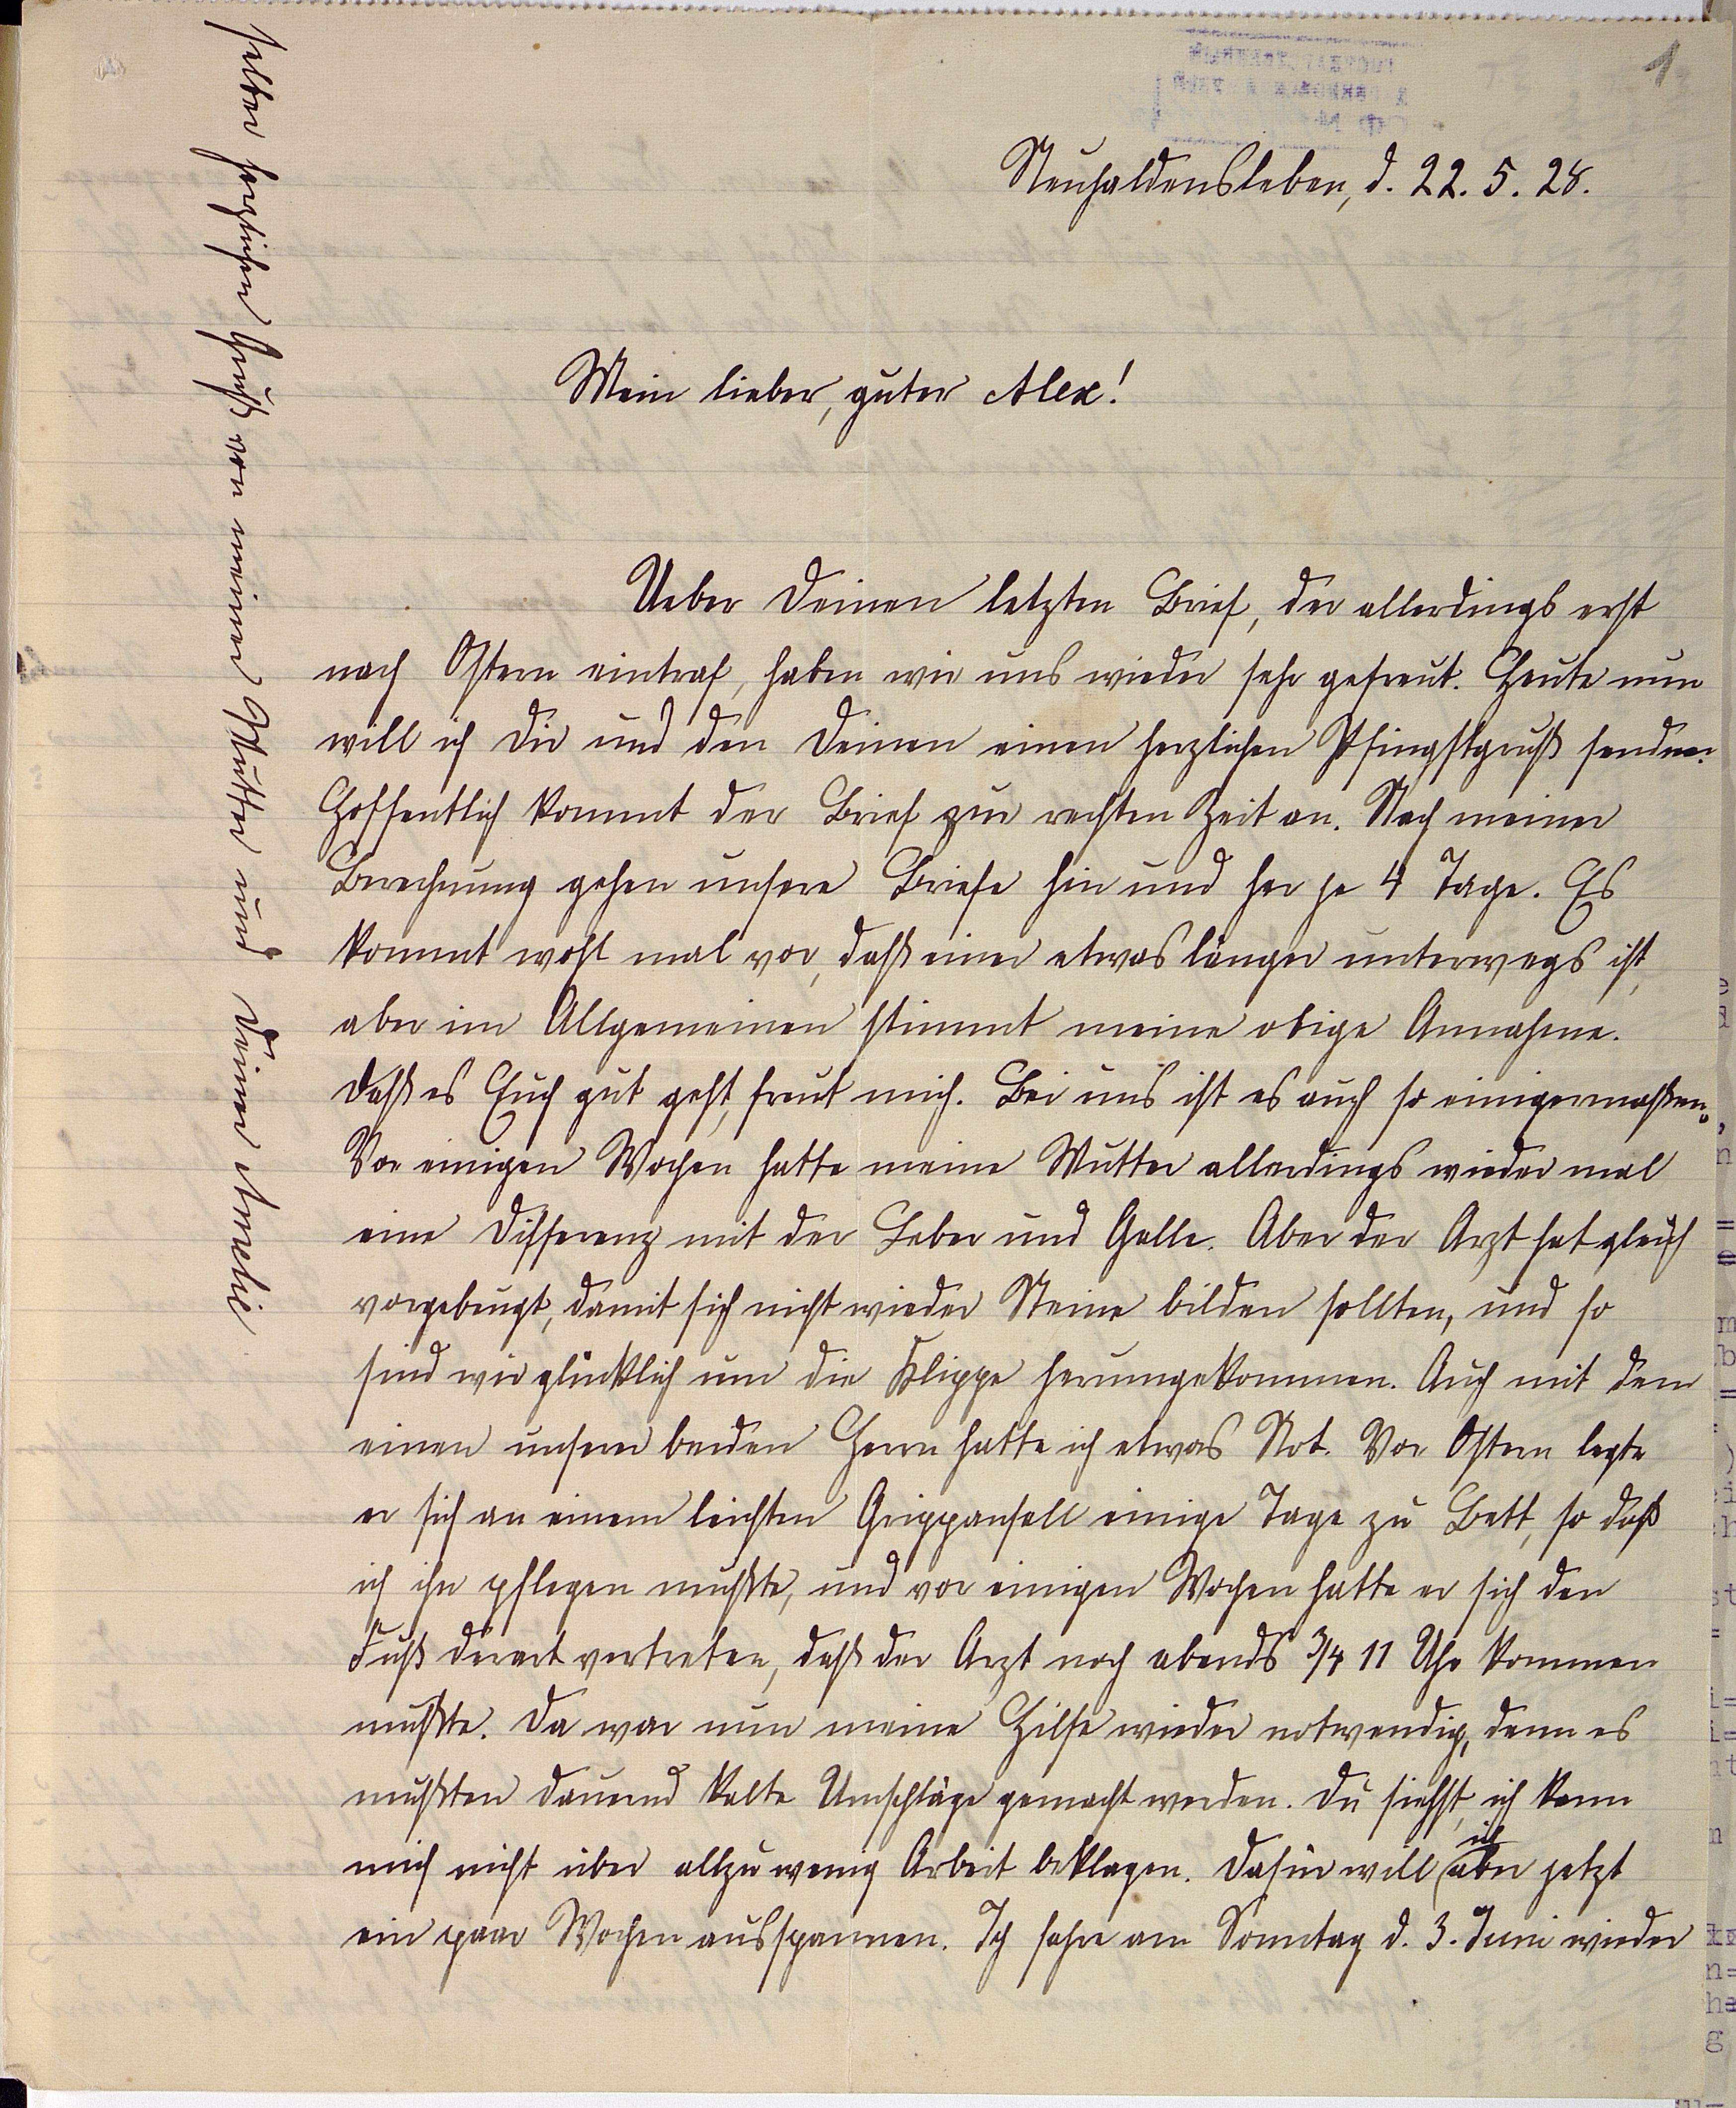 1
Neuhaldensleben, d. 22. 5. 28.
Mein lieber, guter Alex!
Ueber Deinen letzten Brief, der allerdings erst
nach Ostern eintraf, haben wir uns wieder sehr gefreut. Heute nun
will ich Dir und den Deinen einen herzlichen Pfingstgruß senden.
Hoffentlich kommt der Brief zur rechten Zeit an. Nach meiner
Berechnung gehen unsere Briefe hin und her je 4 Tage. Es
kommt wohl mal vor, daß einer etwas länger unterwegs ist,
aber im Allgemeinen stimmt meine obige Annahme.
Daß es Euch gut geht, freut mich. Bei uns ist es auch so einigermaßen.
Vor einigen Wochen hatte meine Mutter allerdings wieder mal
eine Differenz mit der Leber und Galle. Aber der Arzt hat gleich
vorgebeugt, damit sich nicht wieder Steine bilden sollten, und so
sind wir glücklich um die Klippe herumgekommen. Auch mit dem
einen unserer beiden Herrn hatte ich etwas Not. Vor Ostern legte
er sich an einem leichten Grippanfall einige Tage zu Bett, so daß
ich ihn pflegen mußte, und vor einigen Wochen hatte er sich den
Fuß derart vertreten, daß der Arzt noch abends 3/4 11 Uhr kommen
mußte. Da war nun meine Hilfe wieder notwendig, denn es
mußten dauernd kalte Umschläge gemacht werden. Du siehst, ich kann
mich nicht über allzu wenig Arbeit beklagen. Dafür will ich aber jetzt
ein paar Wochen ausspannen. Ich fahre am Sonntag d. 3. Juni wieder
herzlichen Gruß von meiner Mutter und Deiner Amelie